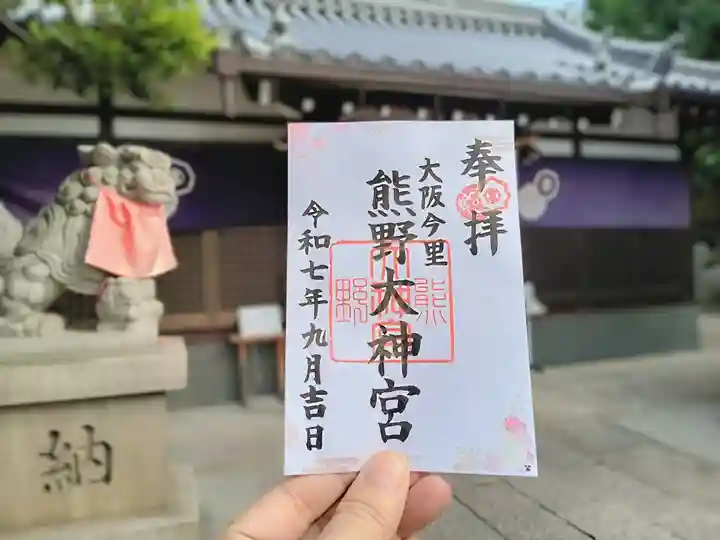 奉拝
大阪今里
熊野大神宮
令和七年九月吉日
熊
野
納